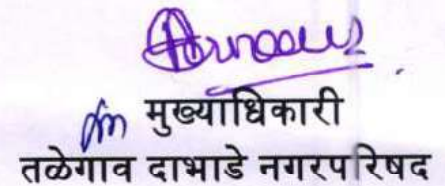 मुख्याधिकारी
तळेगाव दाभाडे नगरपरिषद